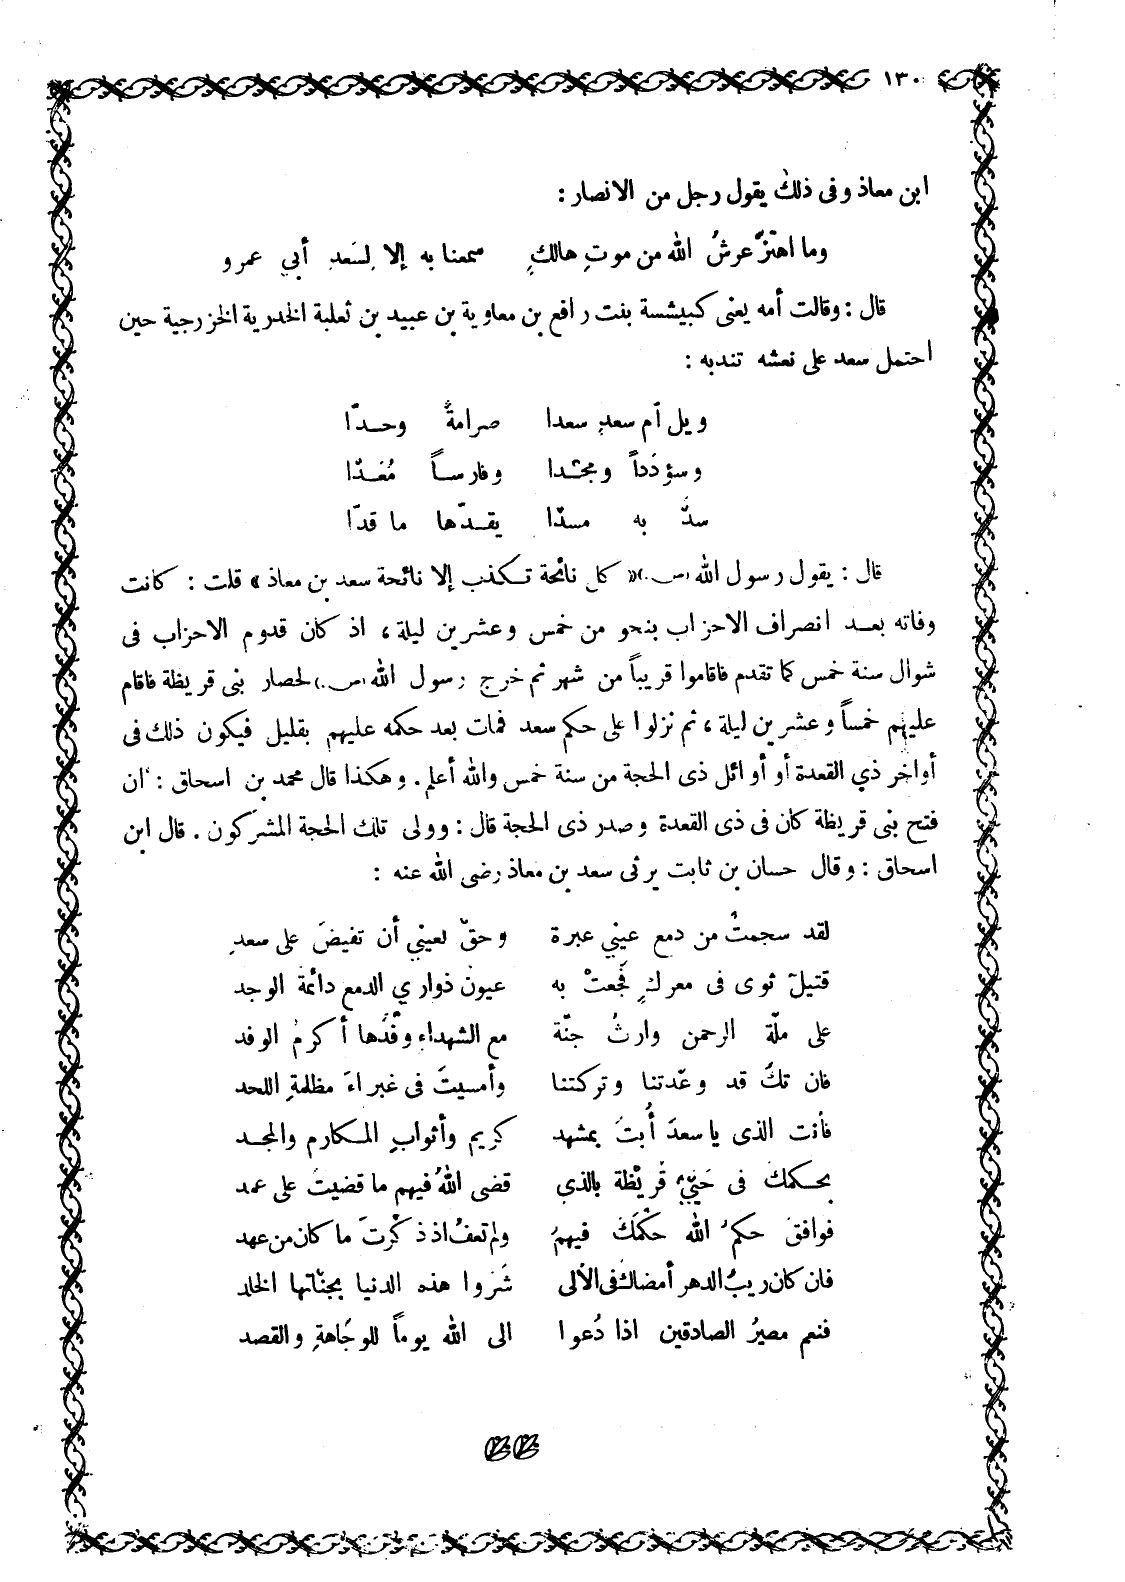 ١٣٠
ابن معاذ وفى ذلك يقول رجل من الانصار :
وما اهتزّ عرشُ الله من موتِ هالكٍ سمعنا به إلا لِسَعدِ أبي عمرو
قال : وقالت أمه يعنى كبيشسة بنت رافع بن معاوية بن عبيد بن ثعلبة الخدرية الخزرجية حين
احتمل سعد على نعشه تندبه :
ويل أم سعدٍ سعدا صرامةً وحدّا
وسؤدَداً ومجدا وفارساً مُعَدّا
سدَّ به مسدّا يقدّها ما قدّا
قال : يقول رسول الله (ص.) « كل نائحة تكذب إلا نائحة سعد بن معاذ » قلت : كانت
وفاته بعد انصراف الاحزاب بنحو من خمس وعشرين ليلة ، اذ كان قدوم الاحزاب فى
شوال سنة خمس كما تقدم فاقاموا قريباً من شهر ثم خرج رسول الله (ص.) لحصار بنى قريظة فاقام
عليهم خمساً وعشرين ليلة ، ثم نزلوا على حكم سعد فمات بعد حكمه عليهم بقليل فيكون ذلك فى
أواخر ذي القعدة أو أوائل ذى الحجة من سنة خمس والله أعلم . وهكذا قال محمد بن اسحاق : ان
فتح بنى قريظة كان فى ذى القعدة وصدر ذى الحجة قال : وولى تلك الحجة المشركون . قال ابن
اسحاق : وقال حسان بن ثابت يرثى سعد بن معاذ رضى الله عنه :
لقد سجمتْ من دمع عيني عبرة وحقّ لعيني أن تفيضَ على سعدِ
قتيلٌ ثوى فى معركٍ فُجعتْ به عيونٌ ذواري الدمع دائمة الوجد
على ملّة الرحمن وارثُ جنّة مع الشهداءِ وفْدُها أكرمُ الوفد
فان تكُ قد وعّدتنا وتركتنا وأمسيتَ فى غبراءَ مظلمةِ اللحد
فأنت الذى يا سعدَ أُبتَ بمشهد كريم وأثوابِ المكارم والمجد
بحكمك فى حَيَّيْ قُريْظة بالذي قضى اللهُ فيهم ما قضيتَ على عمد
فوافقَ حكمُ الله حكْمَكَ فيهمُ ولم تعفُ اذ ذكْرتَ ما كان من عهد
فان كان ريبُ الدهر أمضاك فى الألى شَروا هذه الدنيا بجنّاتها الخلد
فنعم مصيرُ الصادقين اذا دُعوا الى الله يوماً للوجَاهةِ والقصد